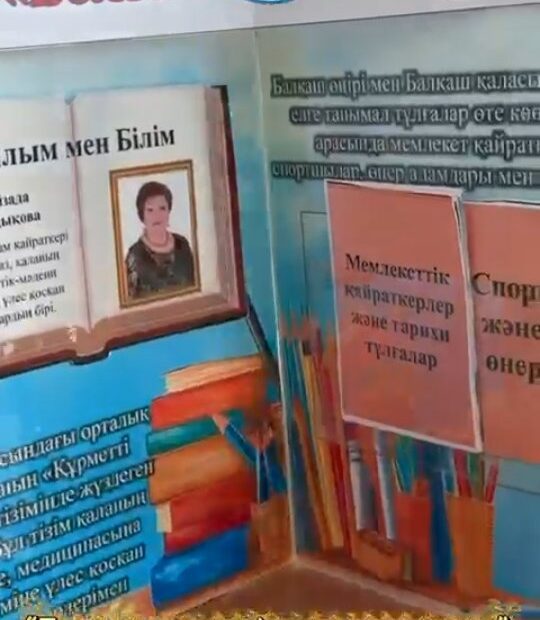 лым мен Білім
ізада
дықова
ам қайраткері
аз, қаланың
тік-мәдени
үлес қосқан
ардың бірі.
сындағы орталық
ның «Құрметті
тізімінде жүздеген
Бұл тізім қаланың
е, медицинасына
міне үлес қосқан
өңірі мен Балқаш қаласы
елге танымал тұлғалар өте
арасында мемлекет
спортшылар, өнер адамдары мен
Мемлекеттік
қайраткерлер
және тарихи
тұлғалар
Спор
және
өнер